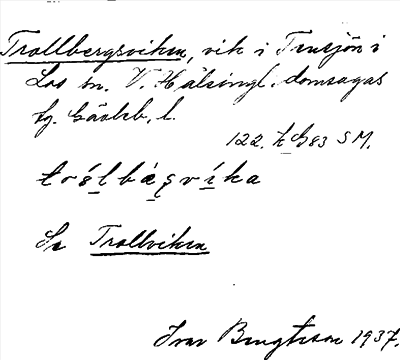 Trollbergsviken, vik i Tensjön i
Los sn. V. Hälsingl. domsagas
tg. Gävleb. l.
122. h G 83 SM.
Se Trollviken
Ivar Bengtsson 1937.